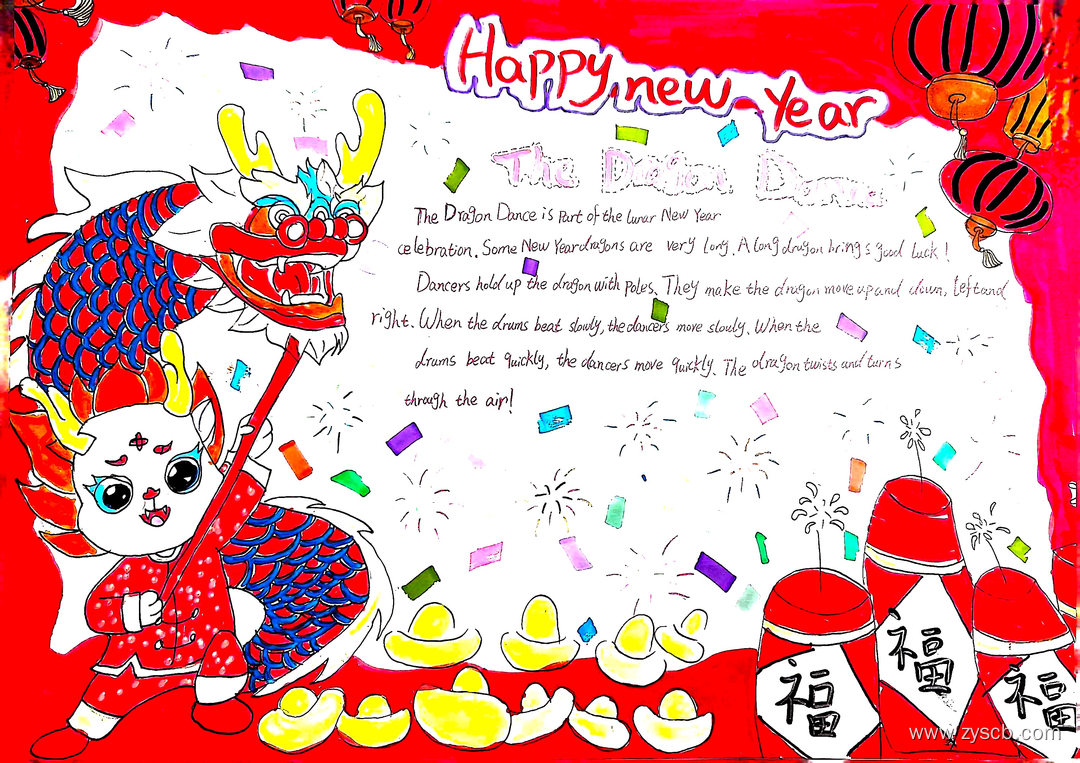 Happy new Year
The Dragon Dance
The Dragon Dance is part of the lunar New Year
celebration. Some New Year dragons are very long. A long dragon brings good luck!
Dancers hold up the dragon with poles. They make the dragon move up and down, left and
right. When the drums beat slowly, the dancers move slowly. When the
drums beat quickly, the dancers move quickly. The dragon twists and turns
through the air!
福
福
福
www.zyscb.com